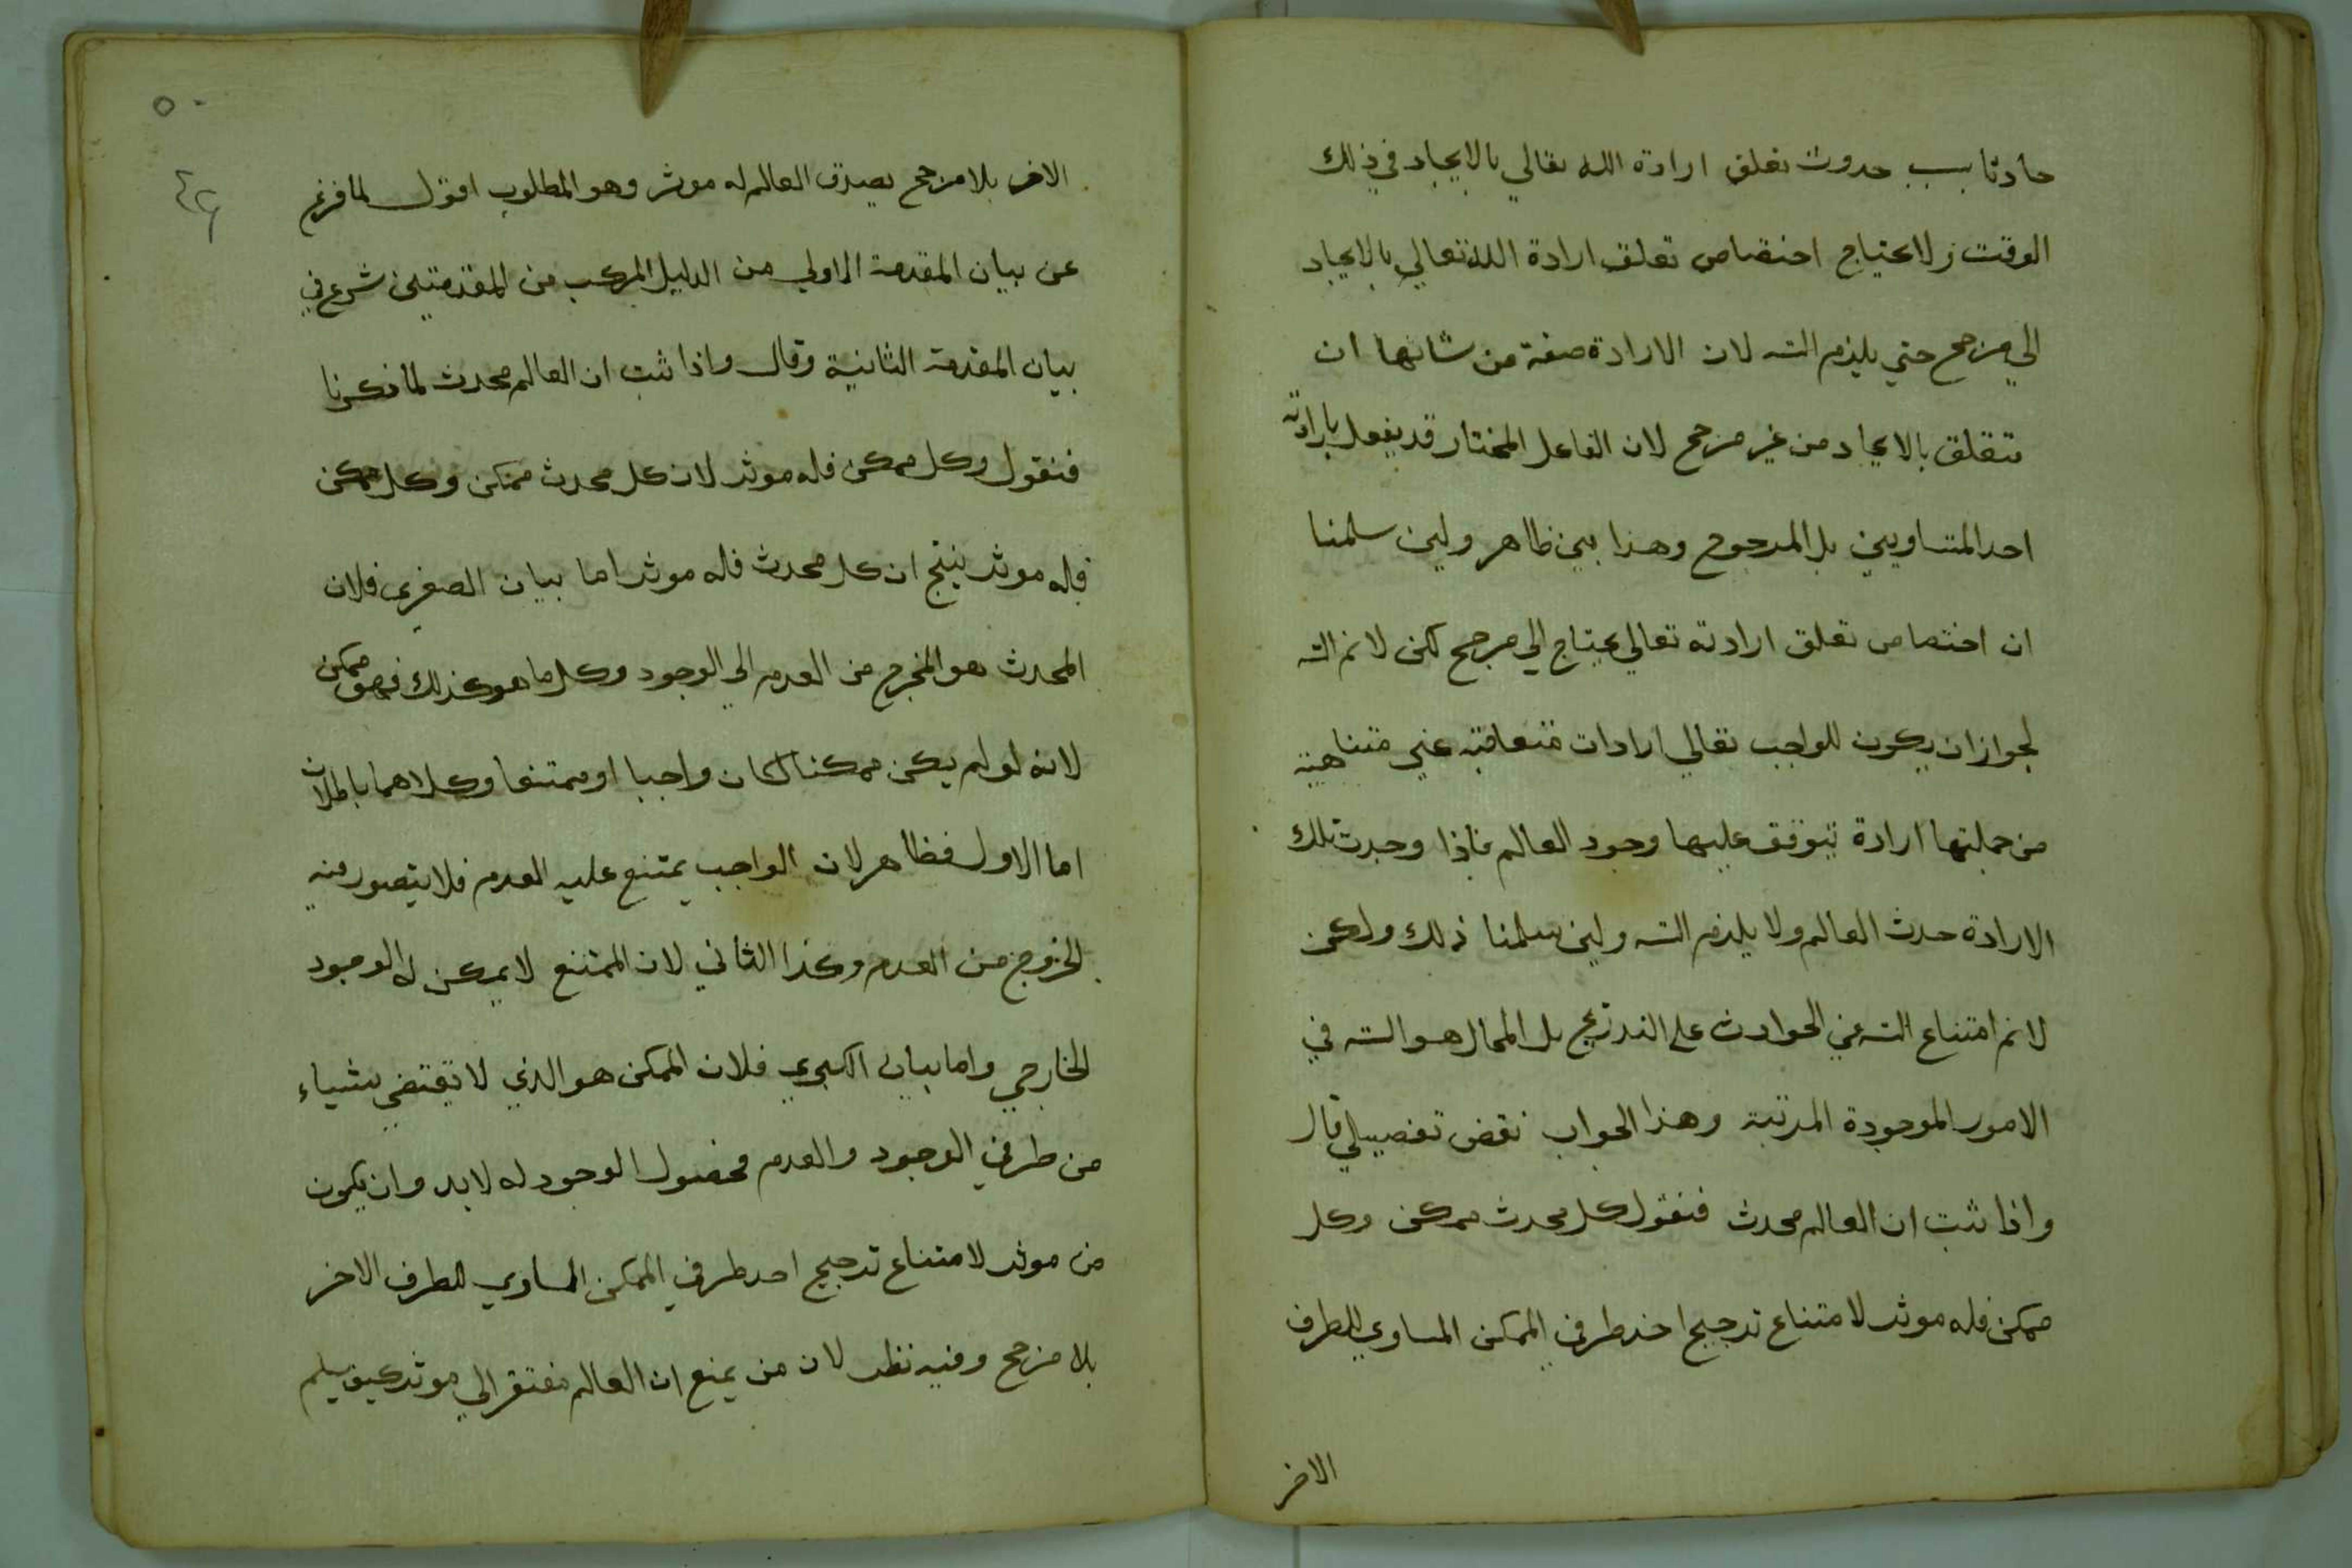 حادثا بسبب حدوث تعلق ارادة الله تعالي بالايجاد في ذلك
الوقت ولا يحتاج اختصاص تعلق ارادة الله تعالي بالايجاد
الي مرجح حتي يلزم التسـ لان الارادة صفة من شانها ان
تتعلق بالايجاد من غير مرجح لان الفاعل المختار قد يفعل بارادته
احد المتساويين بل المرجوح وهذا بين ظاهر ولين سلمنا
ان اختصاص تعلق ارادته تعالي يحتاج الي مرجح لكن لا نم التسـ
لجواز ان يكون للواجب تعالي ارادات متعاقبه غير متناهية
من جملتها ارادة يتوقف عليها وجود العالم فاذا وجدت تلك
الارادة حدث العالم ولا يلزم التسـ ولين سلمنا ذلك ولكن
لا نم امتناع التسـ في الحوادث علي التدريج بل المحال هو التسـ في
الامور الموجودة المرتبة وهذا الجواب نقض تفصيلي قال
واذا ثبت ان العالم محدث فنقول كل محدث ممكن وكل
ممكن فله موثر لامتناع ترجيح احد طرفي الممكن المساوي للطرف
الاخر
٥٠
٤٩
الاخر بلا مرجح يصدق العالم له موثر وهو المطلوب اقول لما فرغ
عن بيان المقدمة الاولي من الدليل المركب من المقدمتين شرع في
بيان المقدمة الثانية وقال واذا ثبت ان العالم محدث لما ذكرنا
فنقول وكل ممكن فله موثر لان كل محدث ممكن وكل ممكن
فله موثر ينتج ان كل محدث فله موثر اما بيان الصغري فلان
المحدث هو المخرج من العدم الي الوجود وكل ما هو كذلك فهو ممكن
لانه لو لم يكن ممكنا لكان واجبا او ممتنعا وكلاهما باطلان
اما الاول فظاهر لان الواجب يمتنع عليه العدم فلا يتصور فيه
الخروج من العدم وكذا الثاني لان الممتنع لا يمكن له الوجود
الخارجي واما بيان الكبري فلان الممكن هو الذي لا يقتضي شياء
من طرفي الوجود والعدم فحصول الوجود له لا بد وان يكون
من موثر لامتناع ترجيح احد طرفي الممكن المساوي للطرف الاخر
بلا مرجح وفيه نظر لان من يمنع ان العالم مفتقر الي موثر كيف يسلم